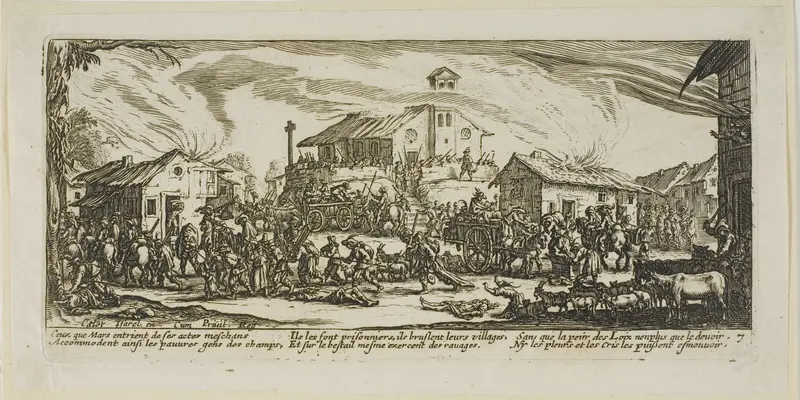 Callot Israel. ex. Cum Privil. Reg
Ceux que Mars entrient de ses actes meschans
Accommodent ainsi les pauures gens des champs,
Ils les font prisonniers, ils bruslent leurs villages,
Et sur le bestail mesme exercent des rauages.
Sans que la peur des Loix nonplus que le devoir
Ny les pleurs et les cris les puissent esmouuoir.
7